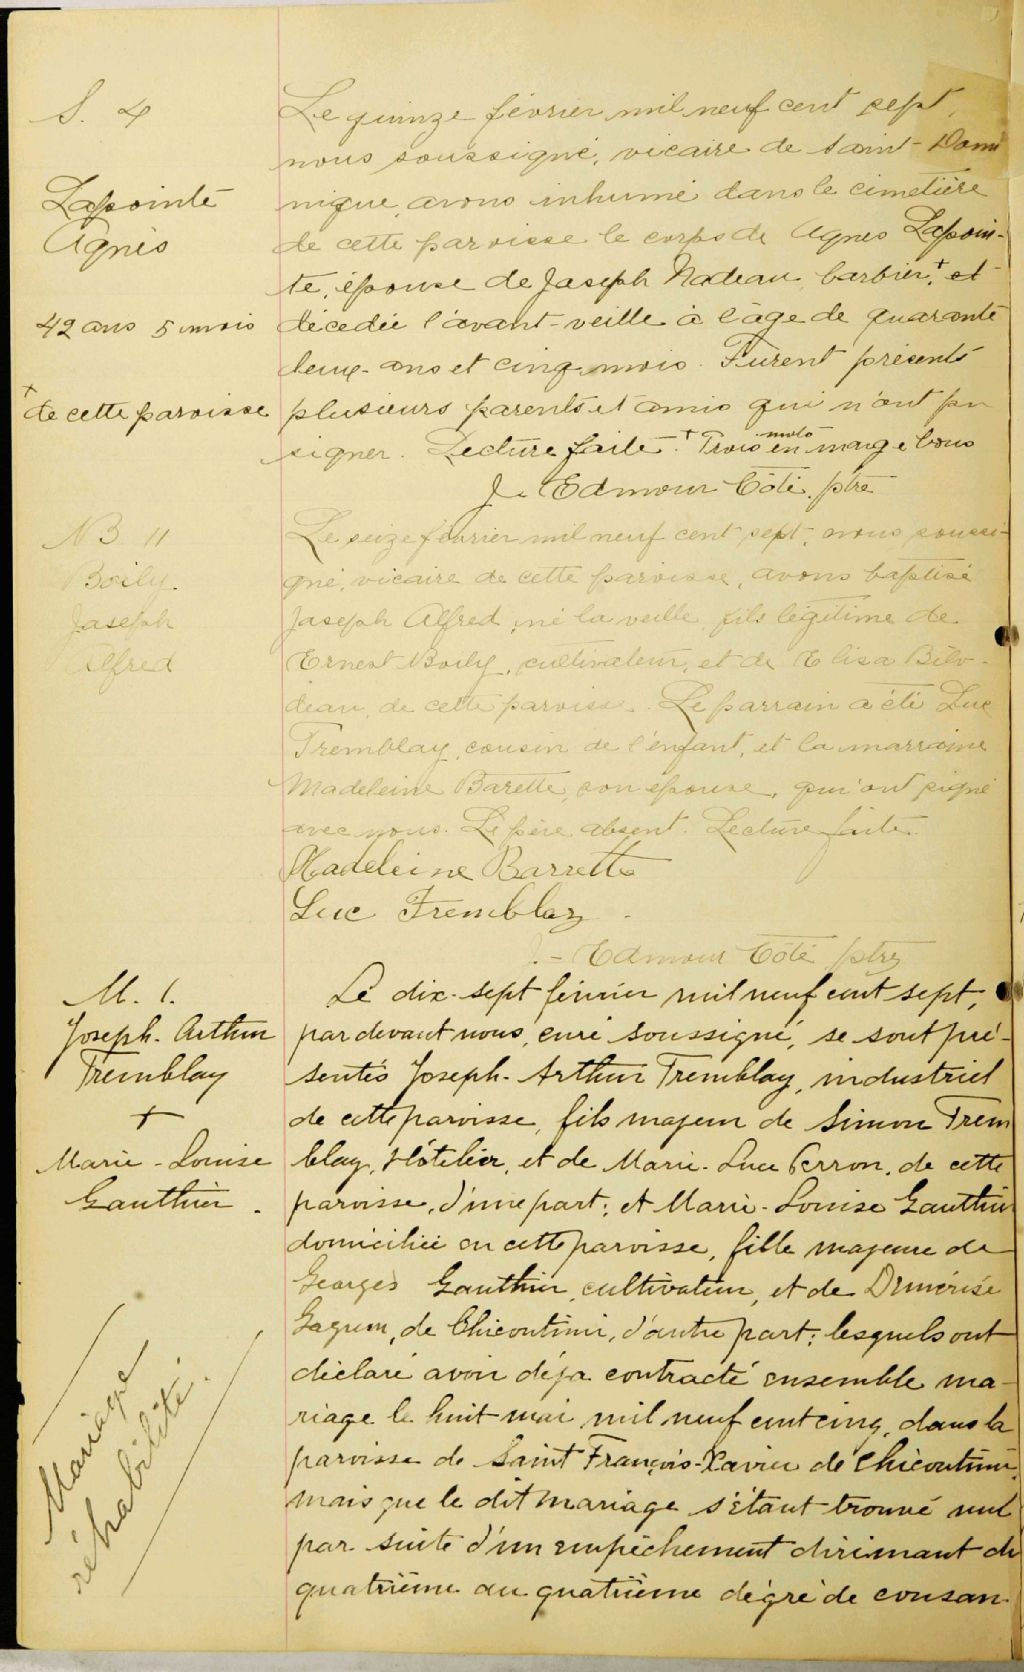 S. 4
Lapointe
Agnès
42 ans 5 mois
+
de cette paroisse
Le quinze février mil neuf cent sept,
nous soussigné, vicaire de Saint-Domi
nique, avons inhumé dans le cimetière
de cette paroisse le corps de Agnes Lapoin-
te, épouse de Joseph Nadeau, barbier,+ et
décédée l'avant-veille à l'âge de quarante
deux-ans et cinq mois. Furent présents
plusieurs parents et amis qui n'ont pu
signer. Lecture faite. + Trois mots en marge bons
J. Edmour Côté, ptre
NB 11
Boily
Joseph
Alfred
Le seize février mil neuf cent sept, nous soussi-
gné, vicaire de cette paroisse, avons baptisé
Joseph Alfred, né la veille, fils légitime de
Ernest Boily, cultivateur, et de Elisa Bilo-
deau, de cette paroisse. Le parrain a été Luc
Tremblay, cousin de l'enfant, et la marraine
Madeleine Barette, son épouse, qui ont signé
avec nous. Le père absent. Lecture faite.
Madeleine Barrette
Luc Tremblay.
J.- Edmour Côté ptre
M. 1.
Joseph-Arthur
Tremblay
+
Marie-Louise
Gauthier.
Mariage
réhabilité.
Le dix-sept février mil neuf cent sept,
par devant nous, curé soussigné, se sont pré-
sentés Joseph-Arthur Tremblay, industriel
de cette paroisse, fils majeur de Simon Trem
blay, Hôtelier, et de Marie-Luce Perron, de cette
paroisse, d'une part; et Marie-Louise Gauthier
domiciliée en cette paroisse, fille majeure de
Georges Gauthier, cultivateur, et de Démérise
Gagnon, de Chicoutimi, d'autre part; lesquels ont
déclaré avoir déja contracté ensemble ma-
riage le huit mai mil neuf cent cinq, dans la
paroisse de Saint François-Xavier de Chicoutimi,
mais que le dit mariage s'étant trouvé nul
par suite d'un empêchement dirimant du
quatrième au quatrième dégré de consan-